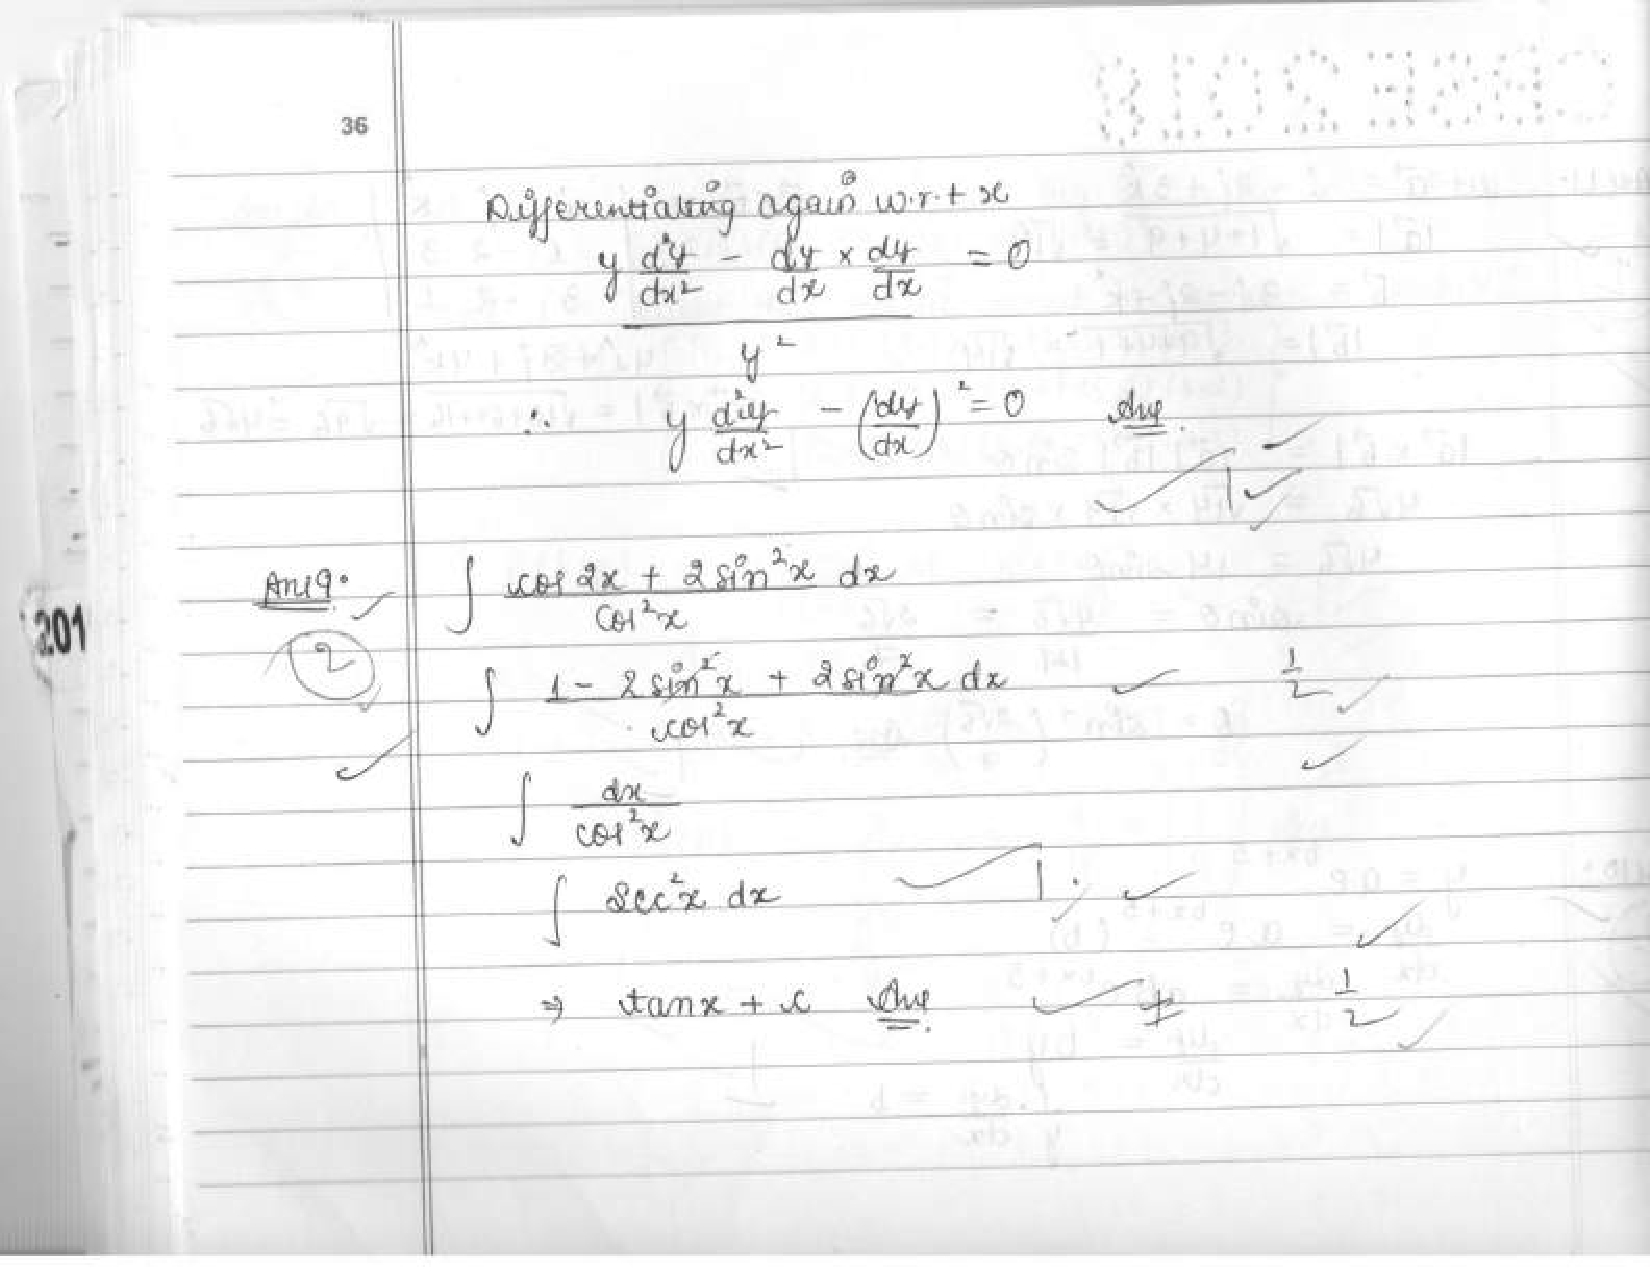 CBSE 2018
36
Differentiating again w.r.t x
y d²y/dx² - dy/dx × dy/dx = 0
y²
∴ y d²y/dx² - (dy/dx)² = 0 Ans.
1
Ans 9.
∫ cos 2x + 2 sin²x / cos²x dx
2
201
∫ 1 - 2 sin²x + 2 sin²x / cos²x dx 1/2
∫ dx / cos²x
∫ sec²x dx 1
⇒ tan x + c Ans. 1/2